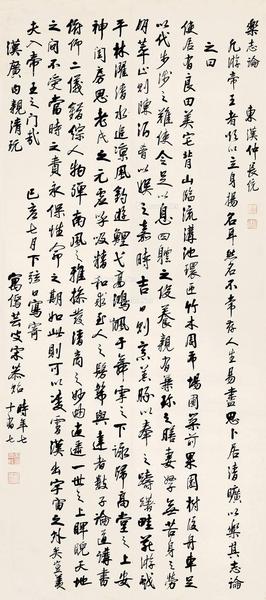 樂志論　東漢仲長統
凡游帝王者欲以立身揚名耳然名不常存人生易滅思卜居清曠以樂其志論
之曰
使居有良田美宅背山臨流溝池環匝竹木周布場圃築前果園樹後舟車足
以代步涉之難使令足以息四體之役養親有兼珍之膳妻孥無苦身之勞
良朋萃止則陳酒肴以娛之嘉時吉日則烹羔豚以奉之躊躇畦苑游戲
平林濯清水追涼風釣游鯉弋高鴻風于舞雩之下詠歸高堂之上安
神閨房思老氏之元虛呼吸精和求至人之髣髴與達者數子論道講書
俯仰二儀錯綜人物彈南風之雅操發清商之妙曲逍遙一世之上睥睨天地
之間不受當時之責永保性命之期如此則可以凌霄漢出宇宙之外矣豈羨
夫入帝王之門哉　己亥七月下弦日寫寄
漢廣內親清玩
寓偈芸皮宋恭貽　時年七
十有七